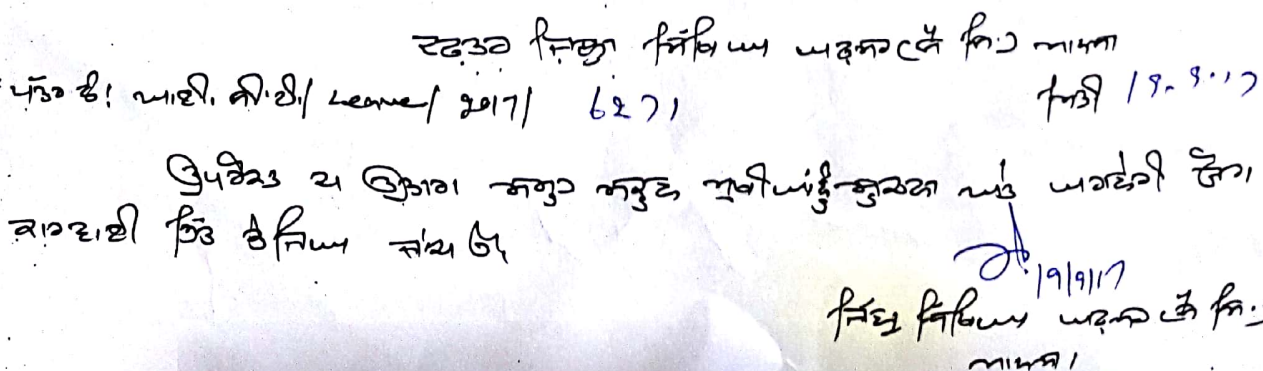 ਦਫਤਰ ਜਿਲ੍ਹਾ ਸਿੱਖਿਆ ਅਫਸਰ (ਸੈ ਸਿ.) ਮਾਨਸਾ
ਪੱਤਰ ਨੰ: ਆਈ. ਸੀ.ਟੀ/ Leave/ 2017/ 6271 ਮਿਤੀ 19-9-17
ਉਪਰੋਕਤ ਦਾ ਉਤਾਰਾ ਸਮੂਹ ਸਕੂਲ ਮੁਖੀਆਂ ਨੂੰ ਸੂਚਨਾ ਅਤੇ ਅਗਲੇਰੀ ਯੋਗ
ਕਾਰਵਾਈ ਹਿੱਤ ਭੇਜਿਆ ਜਾਂਦਾ ਹੈ।
19/9/17
ਜਿਲ੍ਹਾ ਸਿੱਖਿਆ ਅਫਸਰ ਸੈ ਸਿ.
ਮਾਨਸਾ।